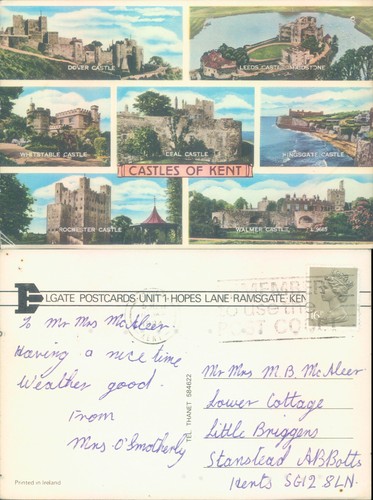 DOVER CASTLE
LEEDS CASTLE, MAIDSTONE
WHITSTABLE CASTLE
DEAL CASTLE
KINGSGATE CASTLE
CASTLES OF KENT
ROCHESTER CASTLE
WALMER CASTLE
ELGATE POSTCARDS·UNIT 1·HOPES LANE·RAMSGATE KEN
REMEMBER
to use the
POST CODE
To Mr Mrs McAleer.
Having a nice time
Weather good.
From
Mrs O'Smotherly
TEL THANET 584622
Mr Mrs M.B McAleer
Lower Cottage
Little Briggens
Stanstead ABBotts
Herts SG12 8LN.
Printed in Ireland